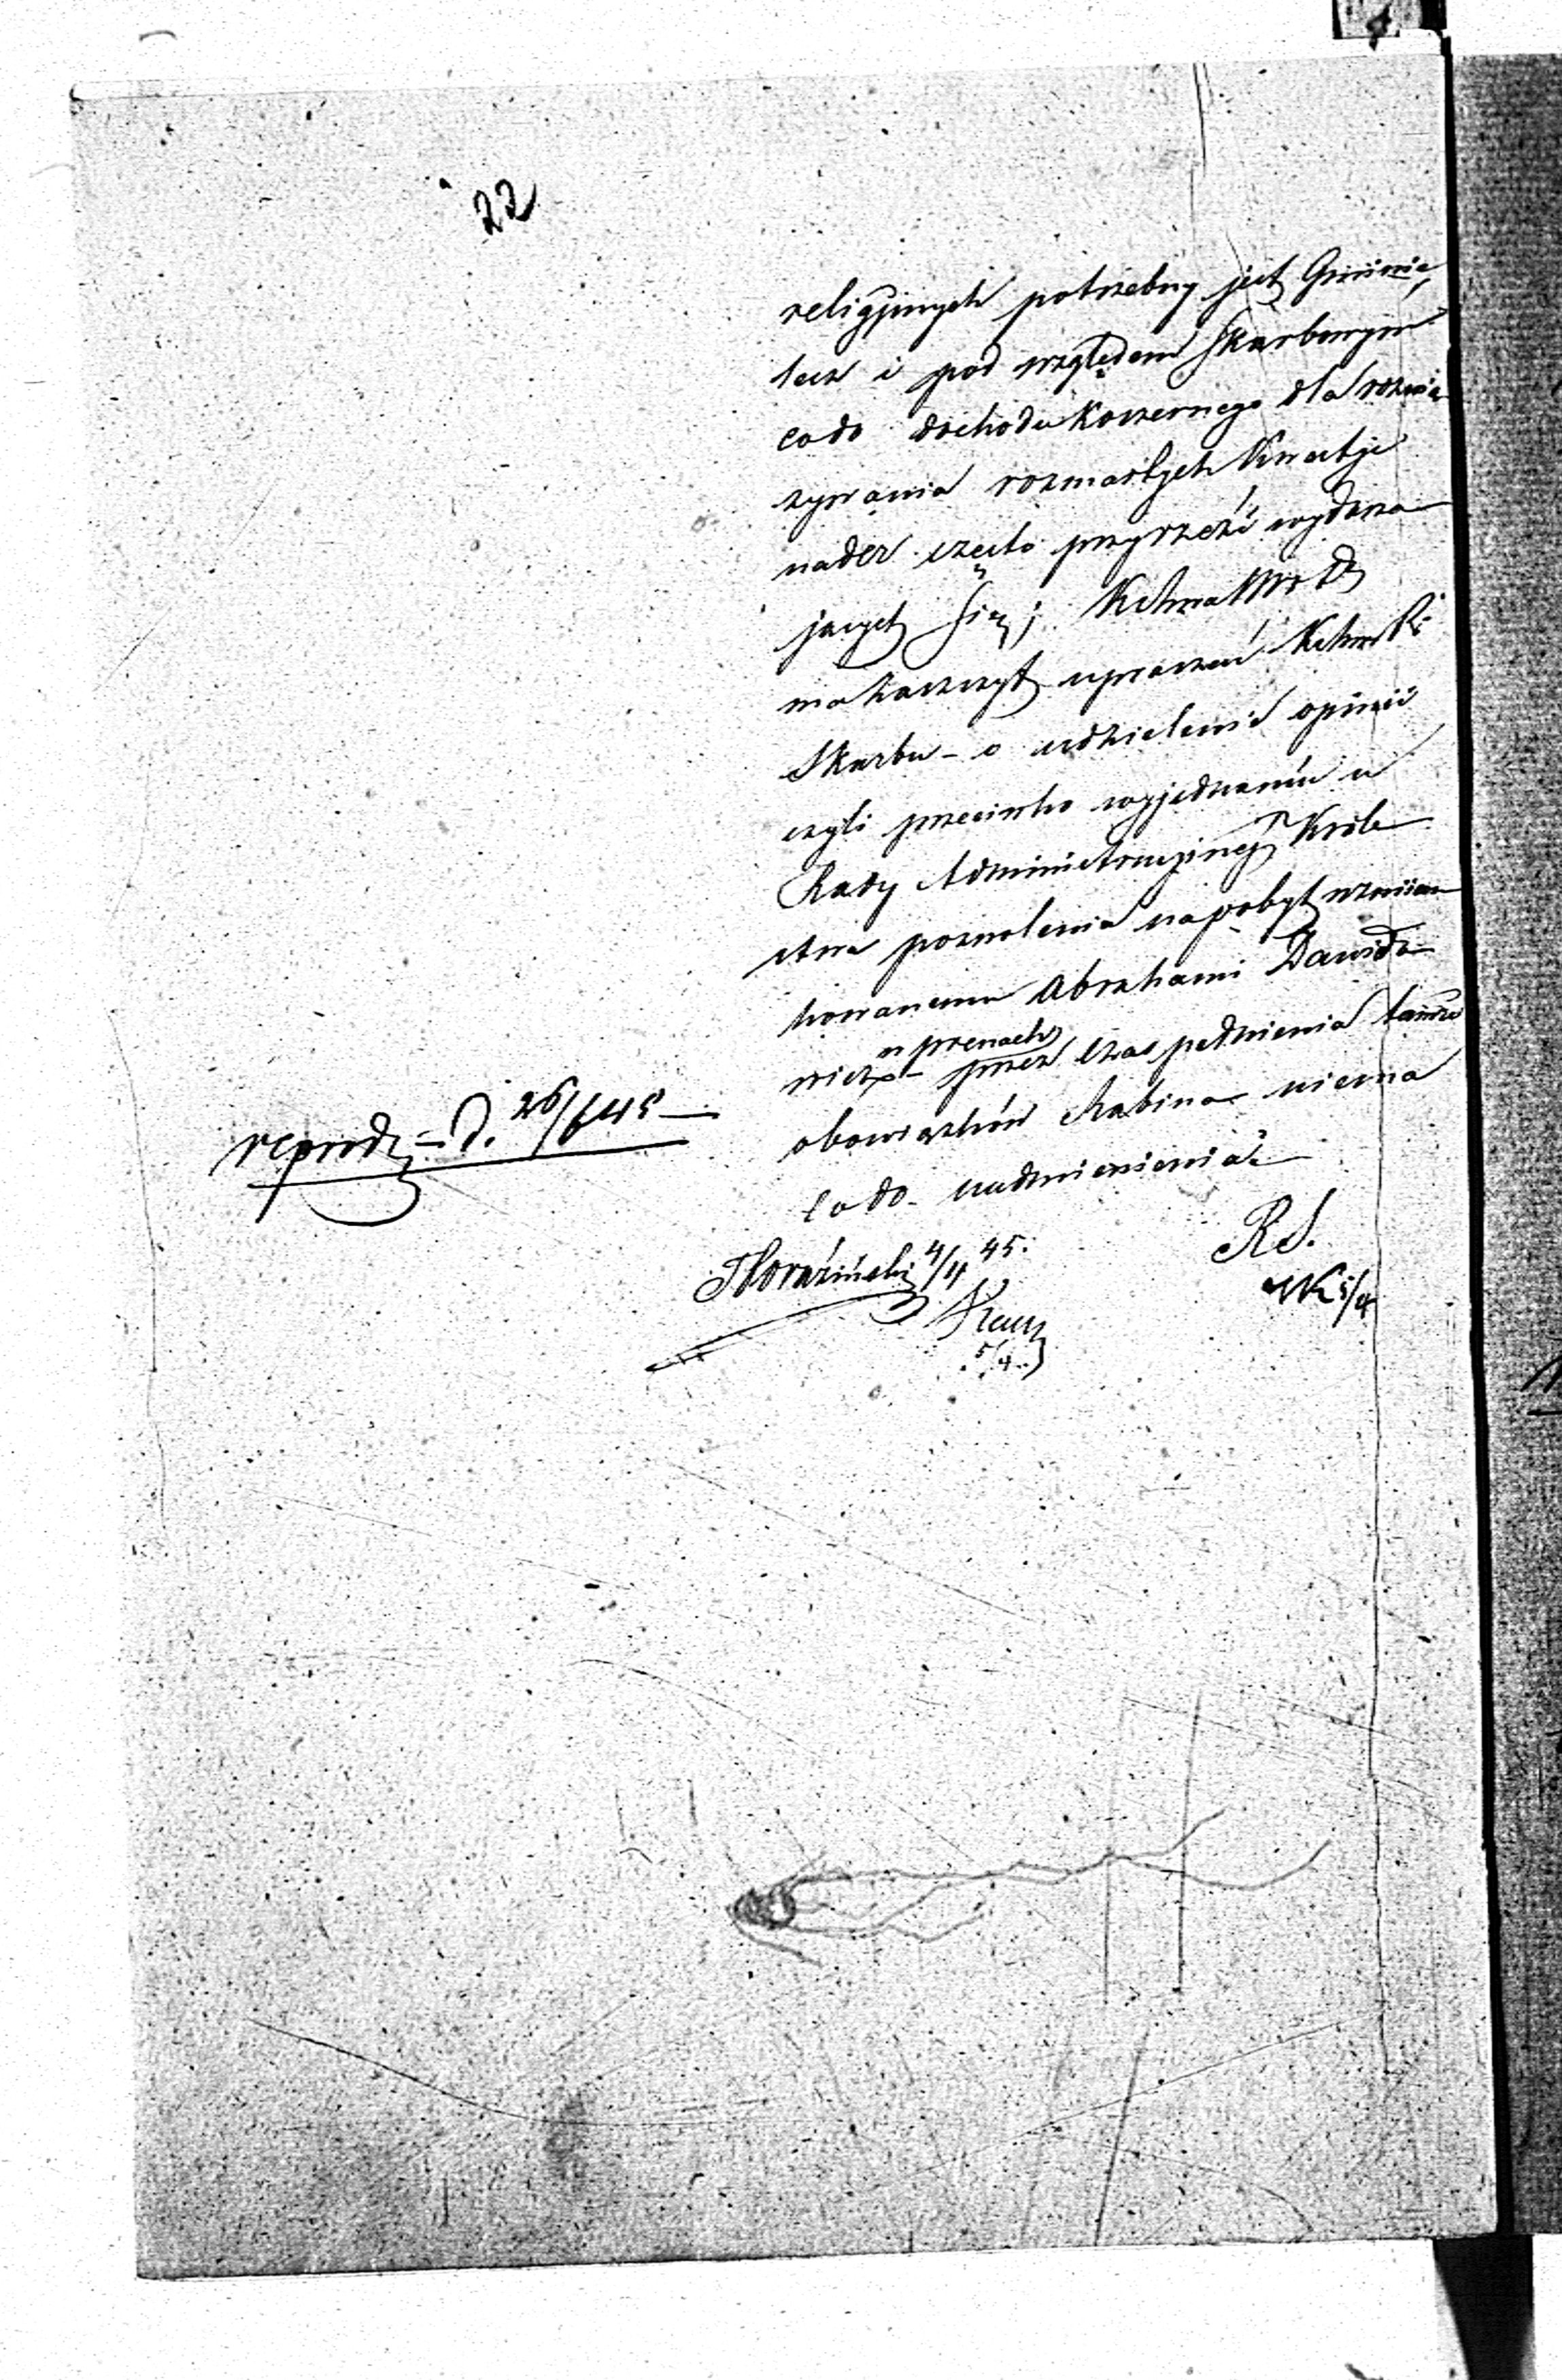 22
religijnych potrzebny jest Gminie,
lecz i pod względem Skarbowym
co do dochodu Koszernego dla rozwią
zywania rozmaitych Kwestji
nader często przyrzeźi wydarza
jących się;
ma zaszczyt upraszać
Skarbu – o udzielenie opinii
czyli przeciwko wyjednaniu u
Rady Administracyjnej Króle
stwa pozwolenia na pobyt wzmian
kowanemu Abrahami Dawido
w prenach
wiczo – przez czas pełnienia tamże
obowiązków Rabina – niema
co do nadmienienia?
reprodz – d. 26/645 –
4/4 45.
RS.
5/4
5/4